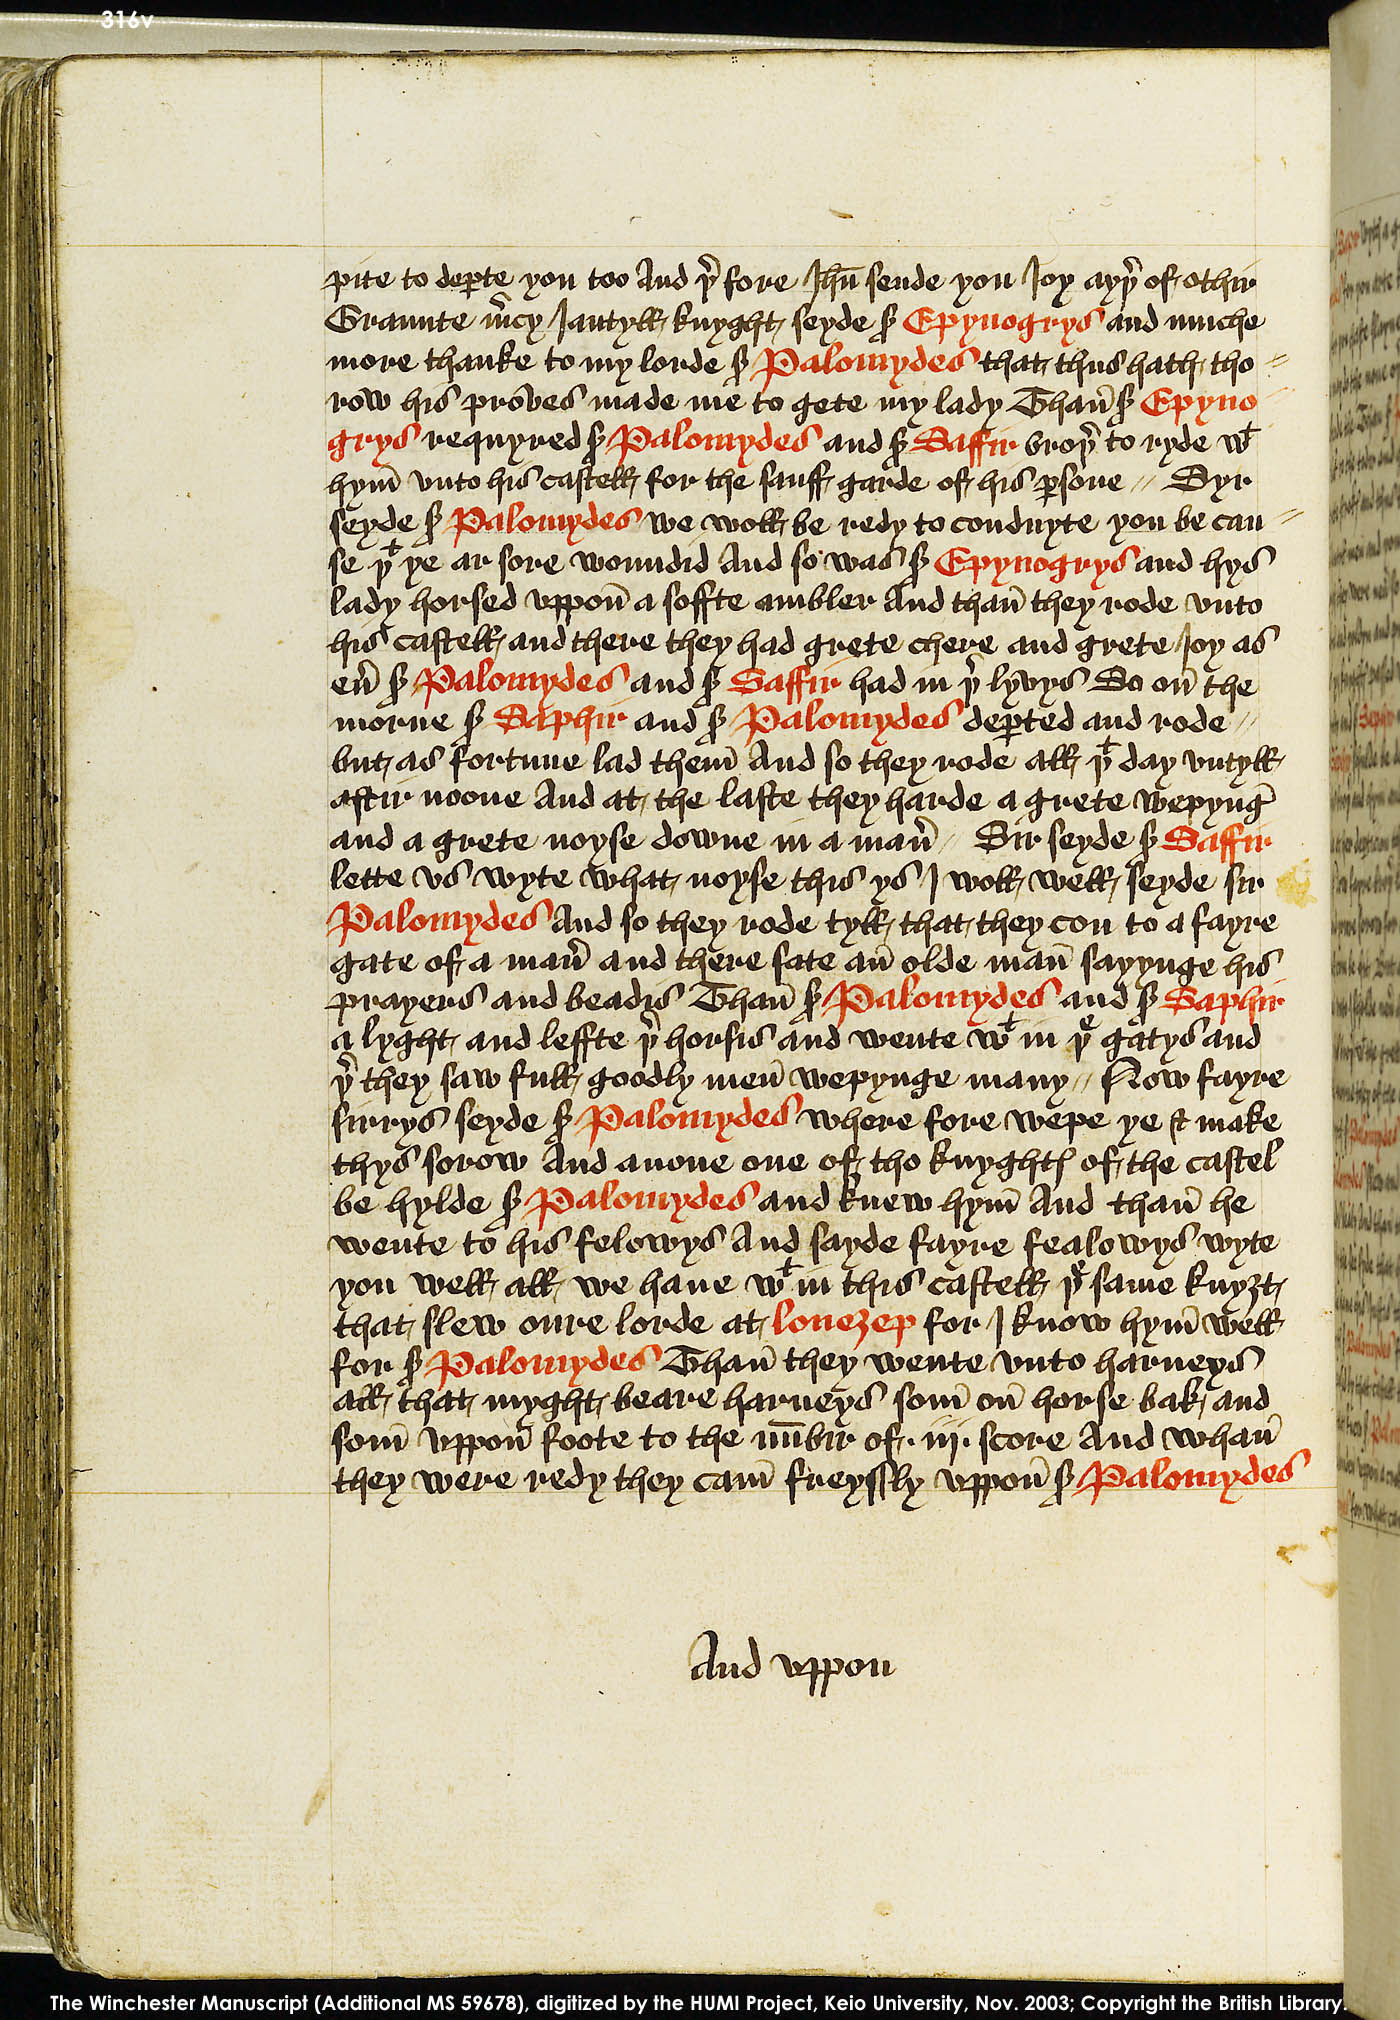 316v
pite to depte you too And þ̉ fore Jhū sende you Joy ayþ̉ of othir
Graunte m̉cy Jantyll knyght seyde ẜ Epynogrys and muche
more thanke to my lorde ẜ Palomydes that thus hath tho //
row his prōves made me to gete my lady Thañ ẜ Epyno
grys requyred ẜ Palomydes and ẜ Saffir broþ̉ to ryde wᵗ
hym̄ vnto his castell for the sauff garde of his ꝑsone // Syr
seyde ẜ Palomydes we woll be redy to conduyte you be cau //
se þᵗ ye ar sore woundid And so was ẜ Epynogrys and hys
lady horsed vppoñ a soffte ambler And thañ they rode vnto
his castell and there they had grete chere and grete Joy as
eũ ẜ Palomydes and ẜ Saffir had in þ̉ lyvys So oñ the
morne ẜ Saphir and ẜ Palomydes deꝑted and rode //
but as fortune lad them̄ And so they rode all þᵗ day vntyll
aftir noone And at the laste they harde a grete wepyng̃
and a grete noyse downe in a mañ̉ // Sir seyde ẜ Saffir
lette vs wyte what noyse this ys J woll well seyde sir
Palomydes And so they rode tyll that they com to a fayre
gate of a mañ̉ and there sate añ olde mañ sayynge his
prayers and beadis Thañ ẜ Palomydes and ẜ Saphir
a lyght and leffte þ̉ horsis and wente wᵗ in þᵉ gatys and
þ̉ they saw full goodly meñ wepynge many // Now fayre
sirrys seyde ẜ Palomydes where fore wepe ye & make
thys sorow And anone one of tho knyghtꝭ of the castel
be hylde ẜ Palomydes and knew hym̄ And thañ he
wente to his felowys And sayde fayre fealowys wyte
you well all we haue wᵗ in this castell þᵉ same knyȝt
that slew oure lorde at louezep for J know hym̄ well
for ẜ Palomydes Thañ they wente vnto harneys
all that myght beare harneys som̄ oñ horse bak and
som̄ vppoñ foote to the nūbir of .iij. score And whañ
they were redy they cam̄ freyssly vppoñ ẜ Palomydes
And vppon
The Winchester Manuscript (Additional MS 59678), digitized by the HUMI Project, Keio University, Nov. 2003; Copyright the British Library.